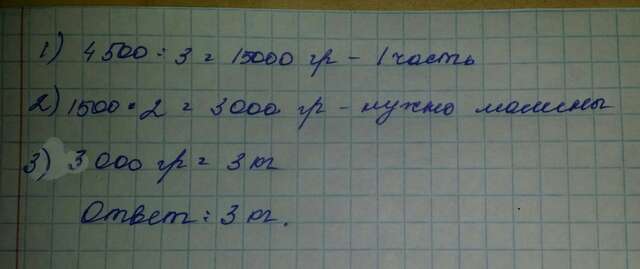 1) 4500 : 3 = 15000 гр - 1 часть
2) 1500 • 2 = 3000 гр - нужно малины
3) 3000 гр = 3 кг
Ответ: 3 кг.